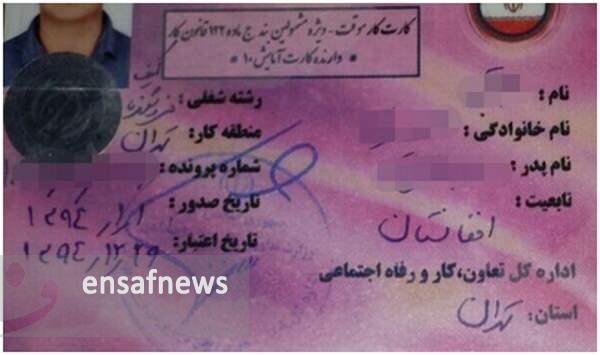 کارت کار موقت - ویژه مشمولین بند ج ماده ۱۲۲ قانون کار
دارنده کارت آمایش ۱۰
نام :
نام خانوادگی :
نام پدر :
تابعیت :
افغانستان
اداره کل تعاون، کار و رفاه اجتماعی
استان: تهران
رشته شغلی :
منطقه کار: تهران
شماره پرونده :
تاریخ صدور: ۱۳۹۴/۱/۱
تاریخ اعتبار: ۱۳۹۴/۱۲/۲۹
ensafnews